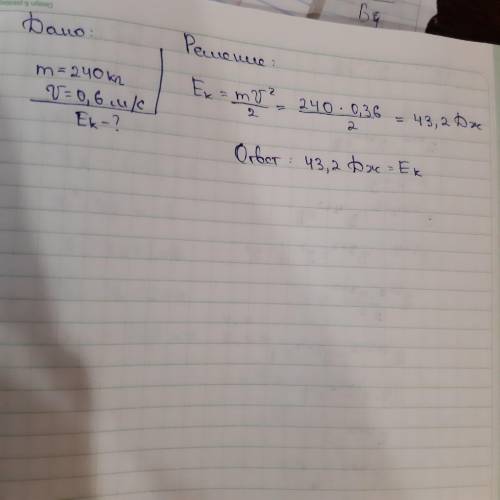 Бq
Дано:
m = 240 кг
v = 0,6 м/с
Eк - ?
Решение:
Eк = mv²/2 = 240 · 0,36/2 = 43,2 Дж
Ответ: 43,2 Дж = Eк